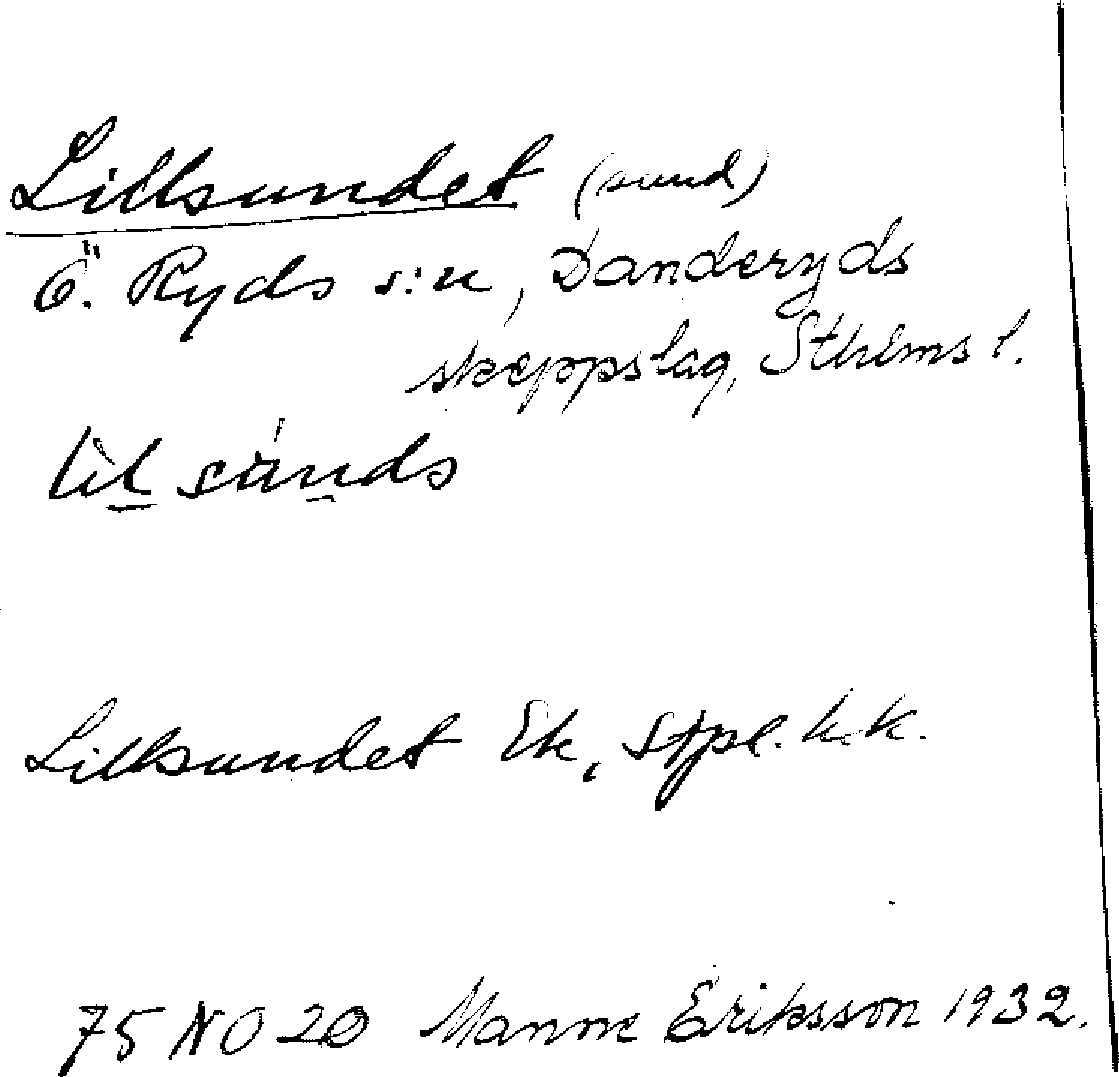 Lillsundet (sund)
Ö. Ryds s:n, Danderyds
skeppslag, Sthlms l.
lil sunds
Lillsundet Ek, Stpl. k.k.
75 NO 20 Manne Eriksson 1932.